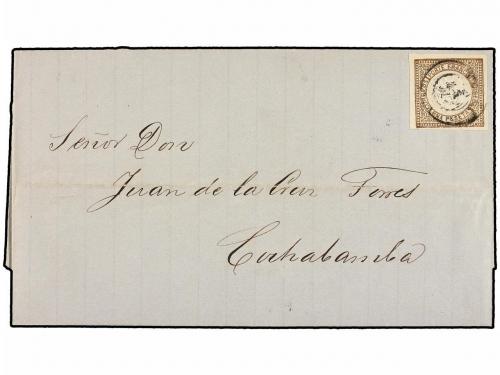 Señor Don
Juan de la Cruz Torres
Cochabamba